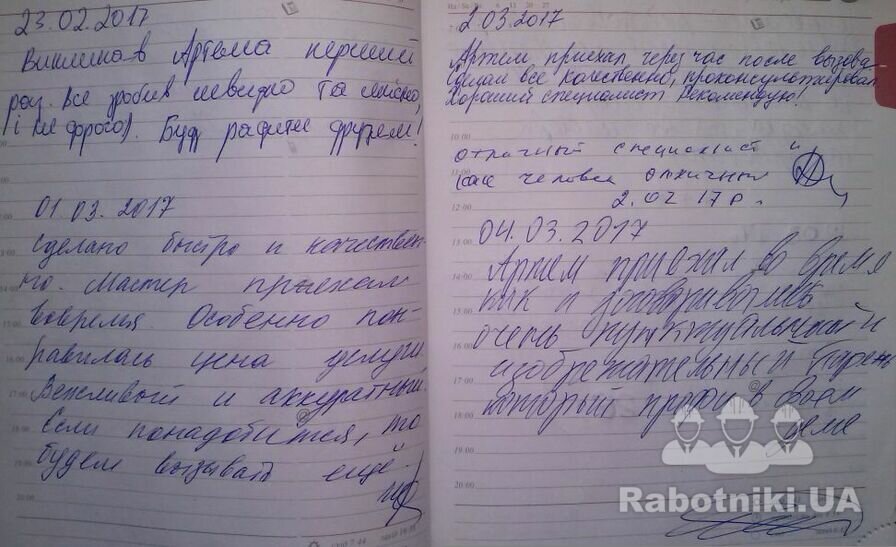 23.02.2017
Викликав Артема перший
раз. Все зробив швидко та якісно,
і не дорого). Буду радити друзям!
01.03.2017
Сделано быстро и качествен-
но. Мастер приехал
вовремя. Особенно пон-
равилась цена услуги.
Вежливый и аккуратный.
Если понадобится, то
будем вызывать ещё.
2.03.2017
Артем приехал через час после вызова
Сделал все качественно, проконсультировал
Хороший специалист Рекомендую!
отличный специалист и
как человек отличный
2.02 17 р.
04.03.2017
Артем приехал во время
как и договаривались
очень пунктуальный и
изобрежательный парень
который профи в своем
деле
Rabotniki.UA